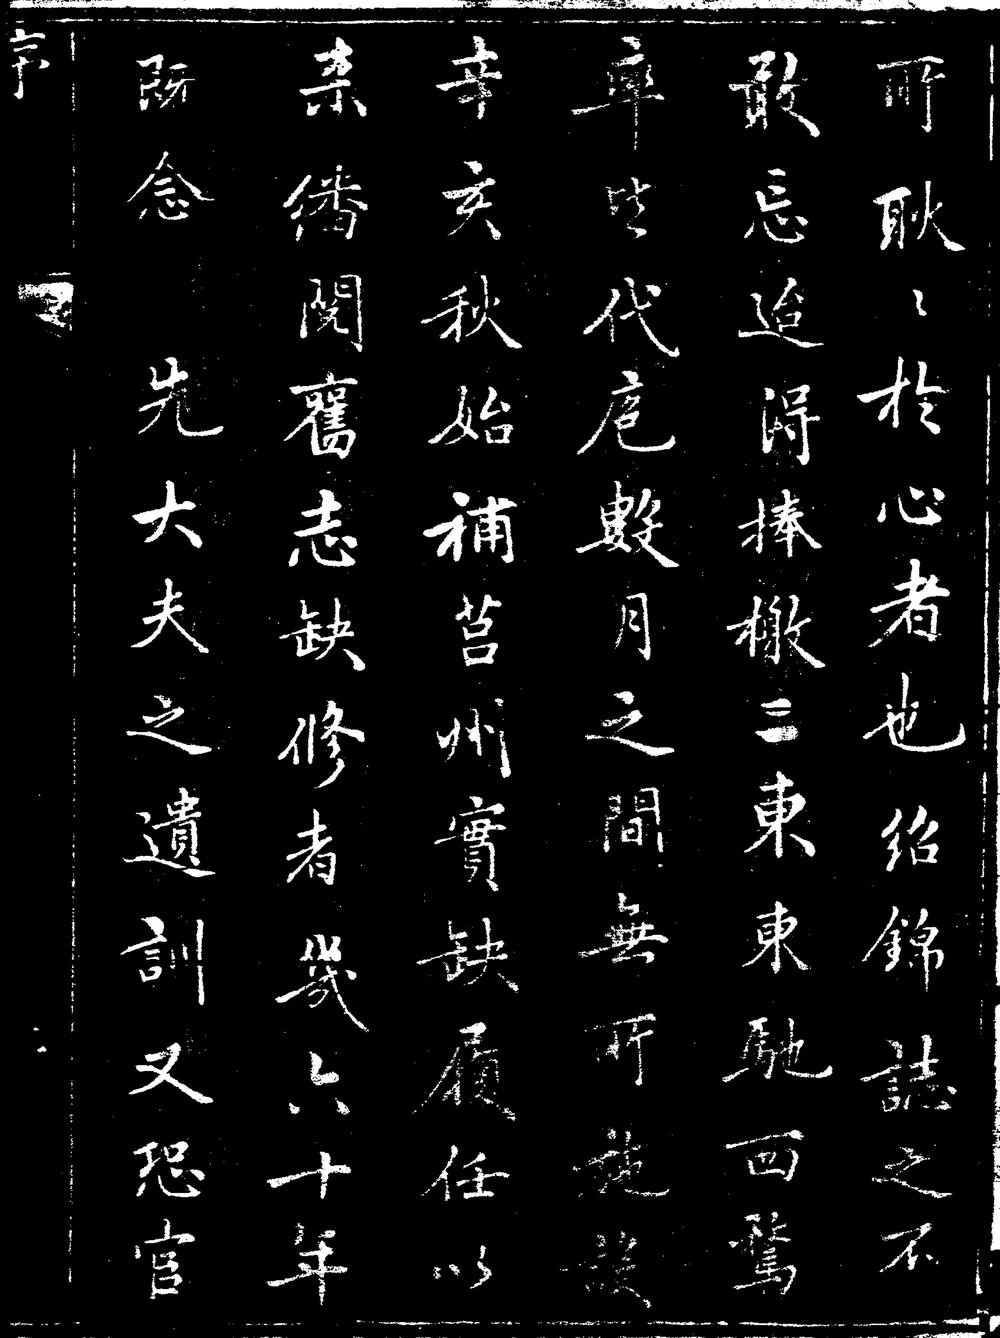 所耿〻於心者也紹錦誌之不
敢忘迨得捧檄三東東馳西騖
率皆代庖數月之間無所施設
辛亥秋始補莒州實缺履任以
來繙閱舊志缺修者幾六十年
既念 先大夫之遺訓又恐官
序